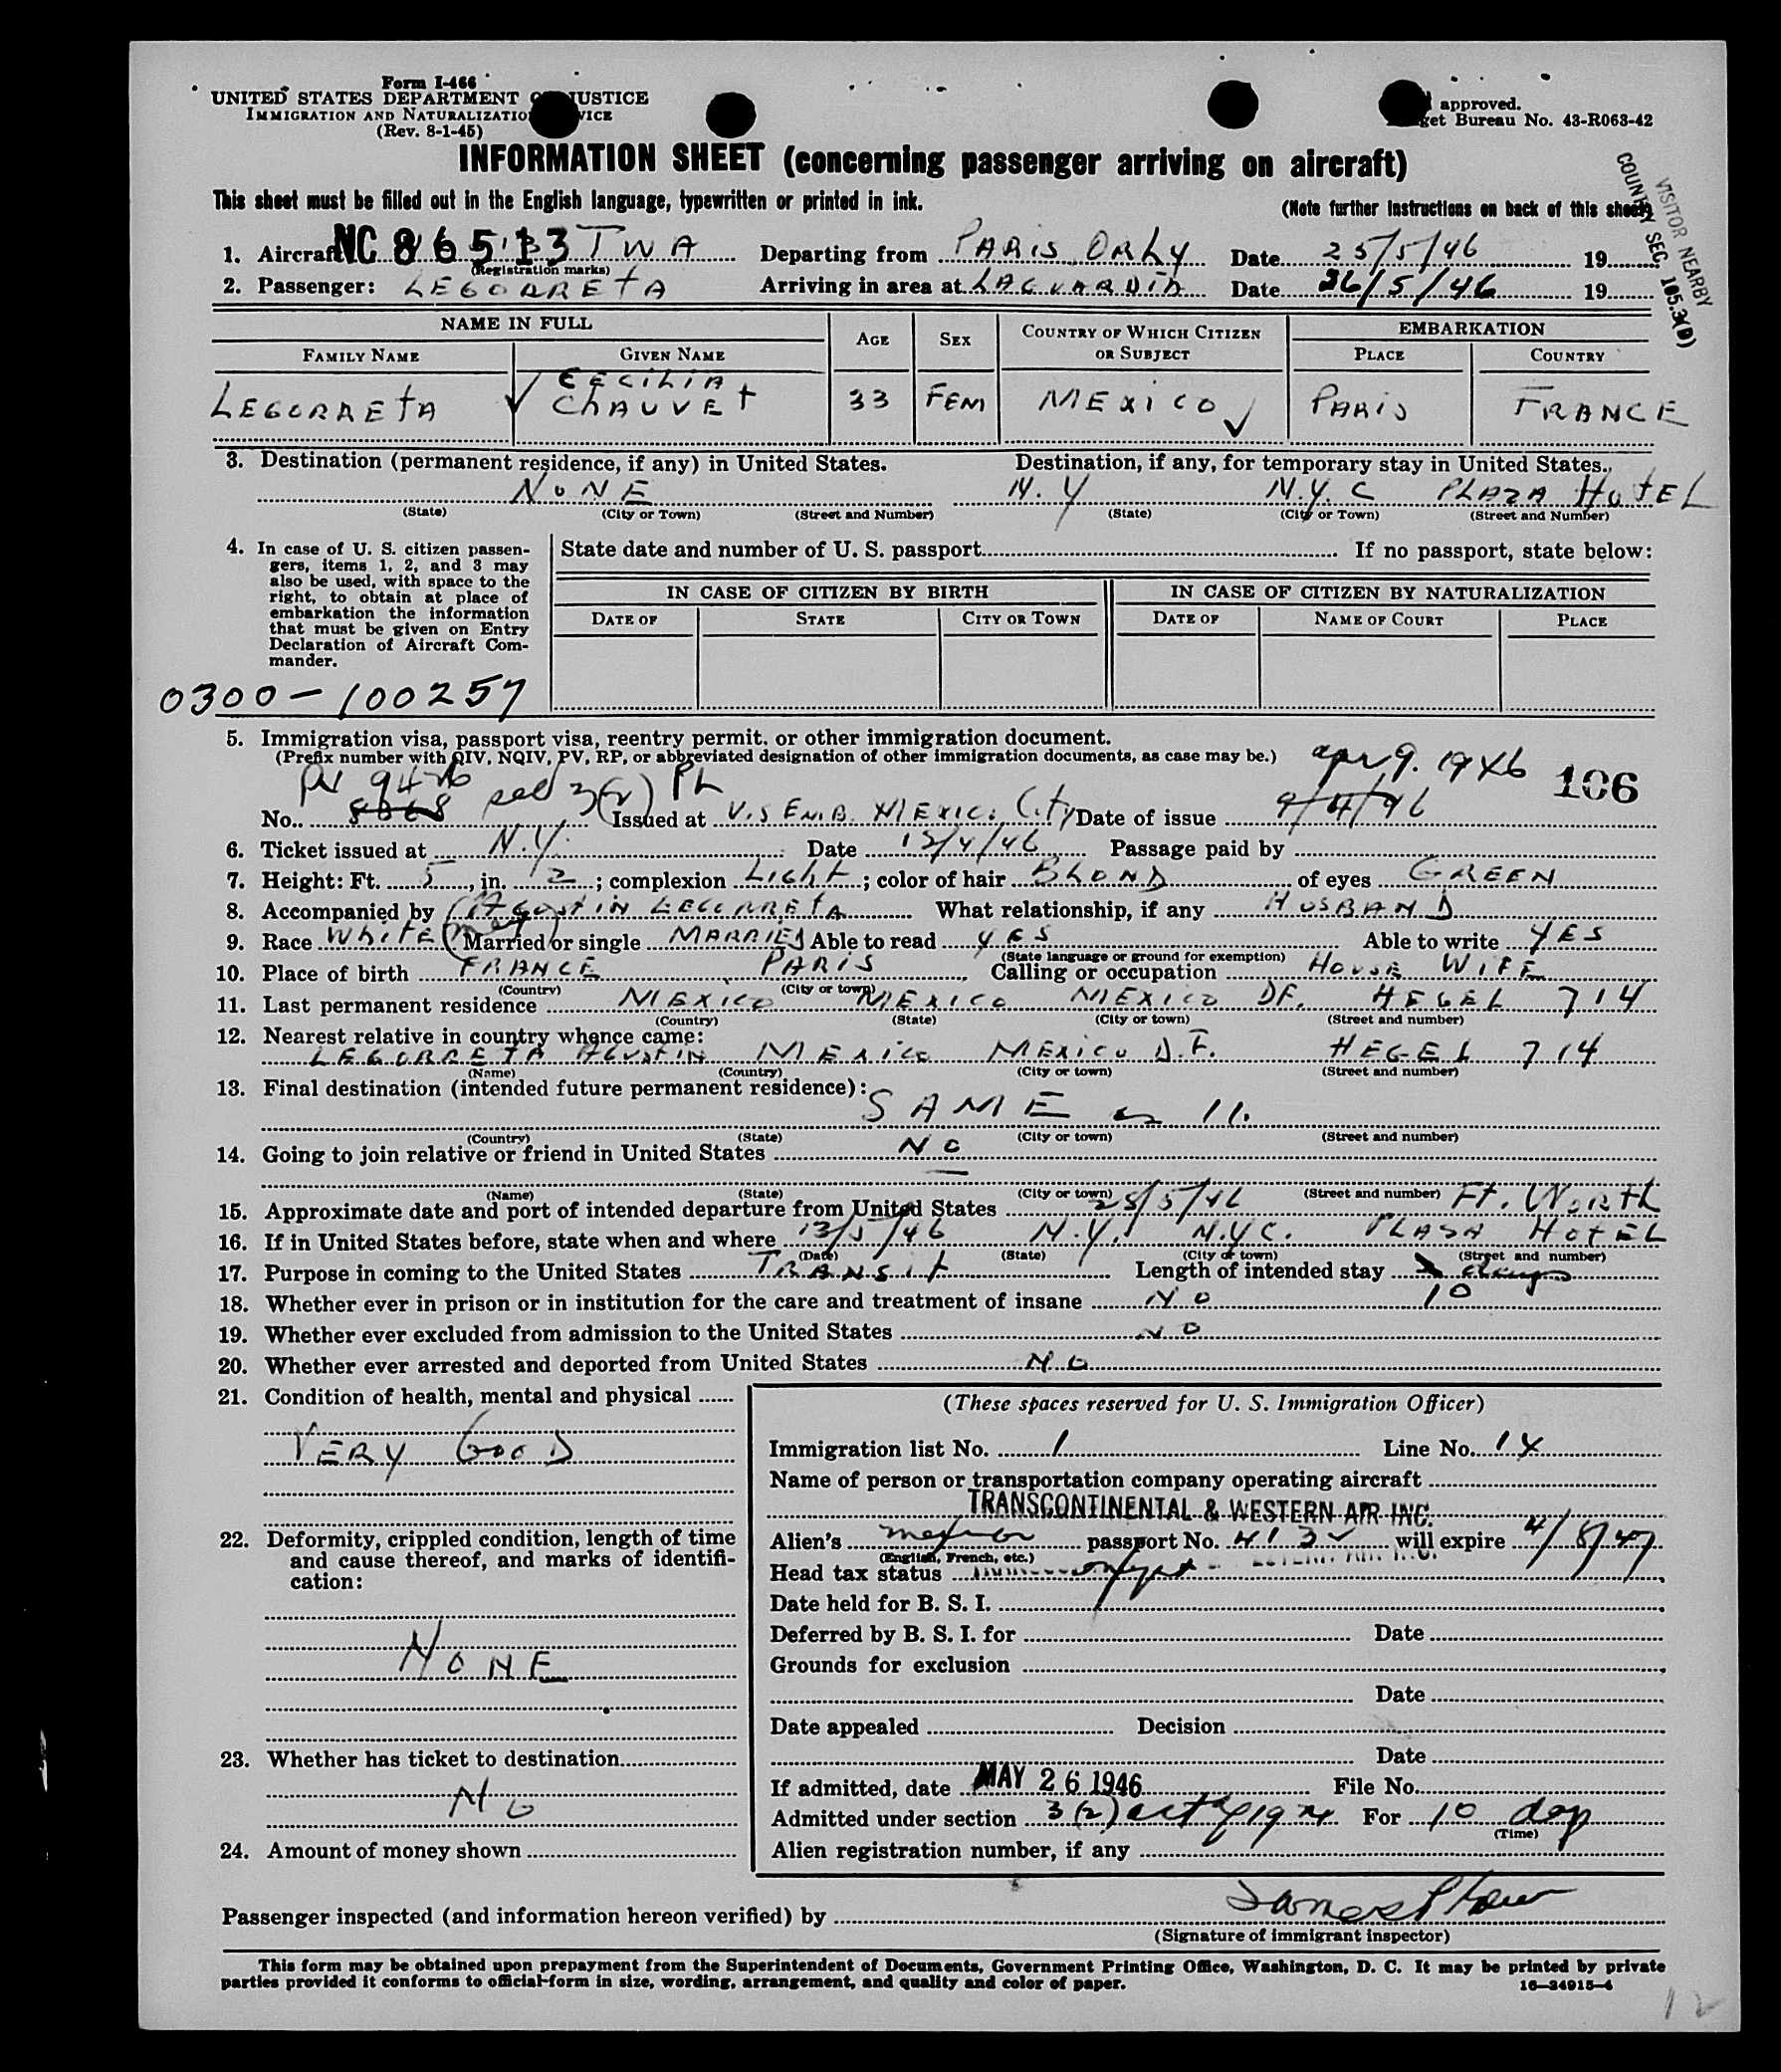 Form I-466
UNITED STATES DEPARTMENT OF JUSTICE
IMMIGRATION AND NATURALIZATION SERVICE
(Rev. 8-1-45)
approved.
Budget Bureau No. 43-R063-42
INFORMATION SHEET (concerning passenger arriving on aircraft)
This sheet must be filled out in the English language, typewritten or printed in ink.
(Note further instructions on back of this sheet)
VISITOR NEARBY
COUNTRY SEC 105.3(D)
1. Aircraft NC 86513 TWA Departing from PARIS ORLY Date 25/5/46 19
(Registration marks)
2. Passenger: LEGORRETA Arriving in area at LAGUARDIA Date 26/5/46 19
NAME IN FULL AGE SEX COUNTRY OF WHICH CITIZEN OR SUBJECT EMBARKATION
FAMILY NAME GIVEN NAME PLACE COUNTRY
LEGORRETA CECILIA CHAUVET 33 FEM MEXICO PARIS FRANCE
3. Destination (permanent residence, if any) in United States. Destination, if any, for temporary stay in United States.
NONE N.Y N.Y.C PLAZA HOTEL
(State) (City or Town) (Street and Number) (State) (City or Town) (Street and Number)
4. In case of U. S. citizen passen-
gers, items 1, 2, and 3 may
also be used, with space to the
right, to obtain at place of
embarkation the information
that must be given on Entry
Declaration of Aircraft Com-
mander.
State date and number of U. S. passport If no passport, state below:
IN CASE OF CITIZEN BY BIRTH IN CASE OF CITIZEN BY NATURALIZATION
DATE OF STATE CITY OR TOWN DATE OF NAME OF COURT PLACE
0300-100257
5. Immigration visa, passport visa, reentry permit, or other immigration document.
(Prefix number with QIV, NQIV, PV, RP, or abbreviated designation of other immigration documents, as case may be.)
PV 9426 3(2) apr 9. 1946 106
No. 8868 Issued at U.S EMB. MEXICO City Date of issue 9/4/46
6. Ticket issued at N.Y. Date 13/4/46 Passage paid by
7. Height: Ft. 5, in. 2; complexion Light; color of hair BLOND of eyes GREEN
8. Accompanied by AGUSTIN LEGORRETA What relationship, if any HUSBAND
9. Race WHITE (Mex) Married or single MARRIED Able to read YES Able to write YES
(State language or ground for exemption)
10. Place of birth FRANCE PARIS Calling or occupation HOUSE WIFE
(Country) (City or town)
11. Last permanent residence MEXICO MEXICO MEXICO DF. HEGEL 714
(Country) (State) (City or town) (Street and number)
12. Nearest relative in country whence came:
LEGORRETA AGUSTIN MEXICO MEXICO D.F. HEGEL 714
(Name) (Country) (City or town) (Street and number)
13. Final destination (intended future permanent residence):
SAME as 11.
(Country) (State) (City or town) (Street and number)
14. Going to join relative or friend in United States NO
(Name) (State) (City or town) (Street and number)
15. Approximate date and port of intended departure from United States 28/5/46 Ft. WORTH
16. If in United States before, state when and where 13/5/46 N.Y. N.Y.C. PLASA HOTEL
(Date) (State) (City or town) (Street and number)
17. Purpose in coming to the United States TRANSIT Length of intended stay days
10
18. Whether ever in prison or in institution for the care and treatment of insane NO
19. Whether ever excluded from admission to the United States NO
20. Whether ever arrested and deported from United States NO
21. Condition of health, mental and physical
VERY GOOD
22. Deformity, crippled condition, length of time
and cause thereof, and marks of identifi-
cation:
NONE
23. Whether has ticket to destination
NO
24. Amount of money shown
(These spaces reserved for U. S. Immigration Officer)
Immigration list No. 1 Line No. 14
Name of person or transportation company operating aircraft
TRANSCONTINENTAL & WESTERN AIR INC.
Alien's Mexican passport No. 4132 will expire 4/8/47
(English, French, etc.)
Head tax status exempt
Date held for B. S. I.
Deferred by B. S. I. for Date
Grounds for exclusion
Date
Date appealed Decision
Date
If admitted, date MAY 26 1946 File No.
Admitted under section 3(2) act of 1924 For 10 days
(Time)
Alien registration number, if any
Passenger inspected (and information hereon verified) by
(Signature of immigrant inspector)
This form may be obtained upon prepayment from the Superintendent of Documents, Government Printing Office, Washington, D. C. It may be printed by private
parties provided it conforms to official form in size, wording, arrangement, and quality and color of paper.
16—24915-4
12